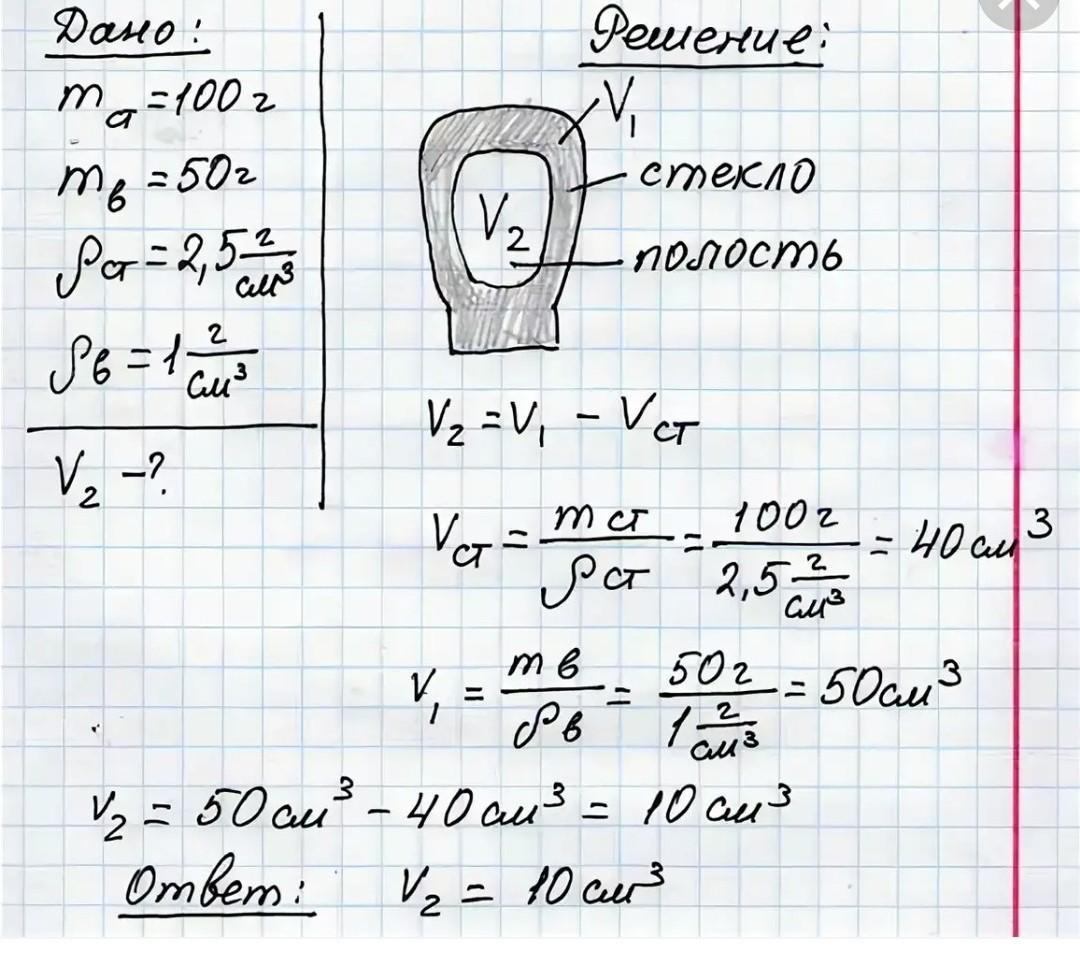 Дано:
m ст = 100 г
m в = 50 г
ρ ст = 2,5 г/см³
ρ в = 1 г/см³
V₂ – ?
Решение:
V₁
стекло
V₂
полость
V₂ = V₁ – V ст
V ст = m ст / ρ ст = 100 г / 2,5 г/см³ = 40 см³
V₁ = m в / ρ в = 50 г / 1 г/см³ = 50 см³
V₂ = 50 см³ – 40 см³ = 10 см³
Ответ: V₂ = 10 см³